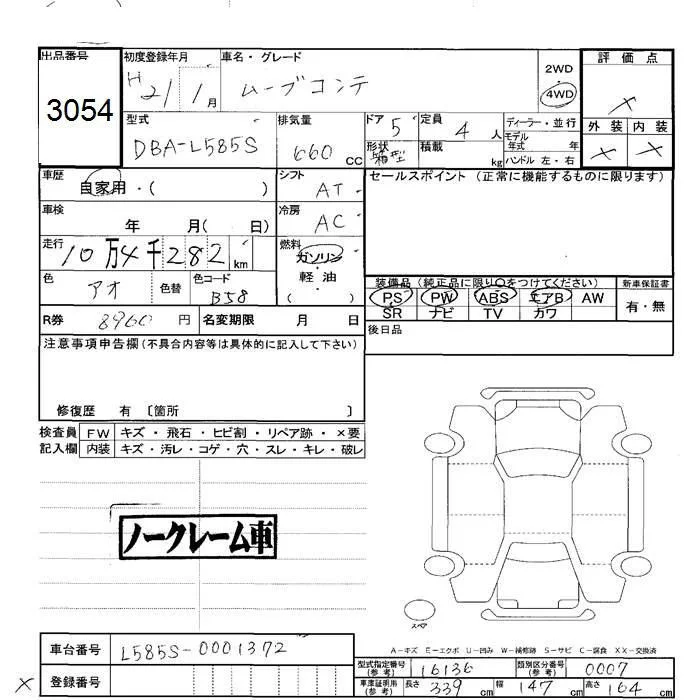 出品番号
3054
初度登録年月
H 21 / 1月
車名・グレード
ムーブコンテ
2WD
4WD
評価点
×
外装 内装
× ×
型式
DBA-L585S
排気量
660 CC
ドア 5
形状 箱型
定員 4 人
積載 kg
ディーラー・並行
モデル年式 年
ハンドル 左・右
車歴
自家用・( )
シフト AT
セールスポイント (正常に機能するものに限ります)
車検 年 月( 日)
冷房 AC
走行 10万4千282km
燃料 ガソリン・軽油
( )
色 アオ 色替 色コード B58
装備品 (純正品に限り○をつけてください)
新車保証書
PS PW ABS エアB AW
有・無
SR ナビ TV カワ
R券 8960 円 名変期限 月 日
後日品
注意事項申告欄(不具合内容等は具体的に記入して下さい)
修復歴 有 〔箇所 〕
検査員 FW キズ・飛石・ヒビ割・リペア跡・×要
記入欄 内装 キズ・汚レ・コゲ・穴・スレ・キレ・破レ
ノークレーム車
スペア
A-キズ E-エクボ U-凹み W-補修跡 S-サビ C-腐食 XX-交換済
車台番号 L585S-0001372
型式指定番号(参考) 16136 類別区分番号(参考) 0007
× 登録番号
車庫証明用(参考) 長さ 339 cm 幅 147 cm 高さ 164 cm